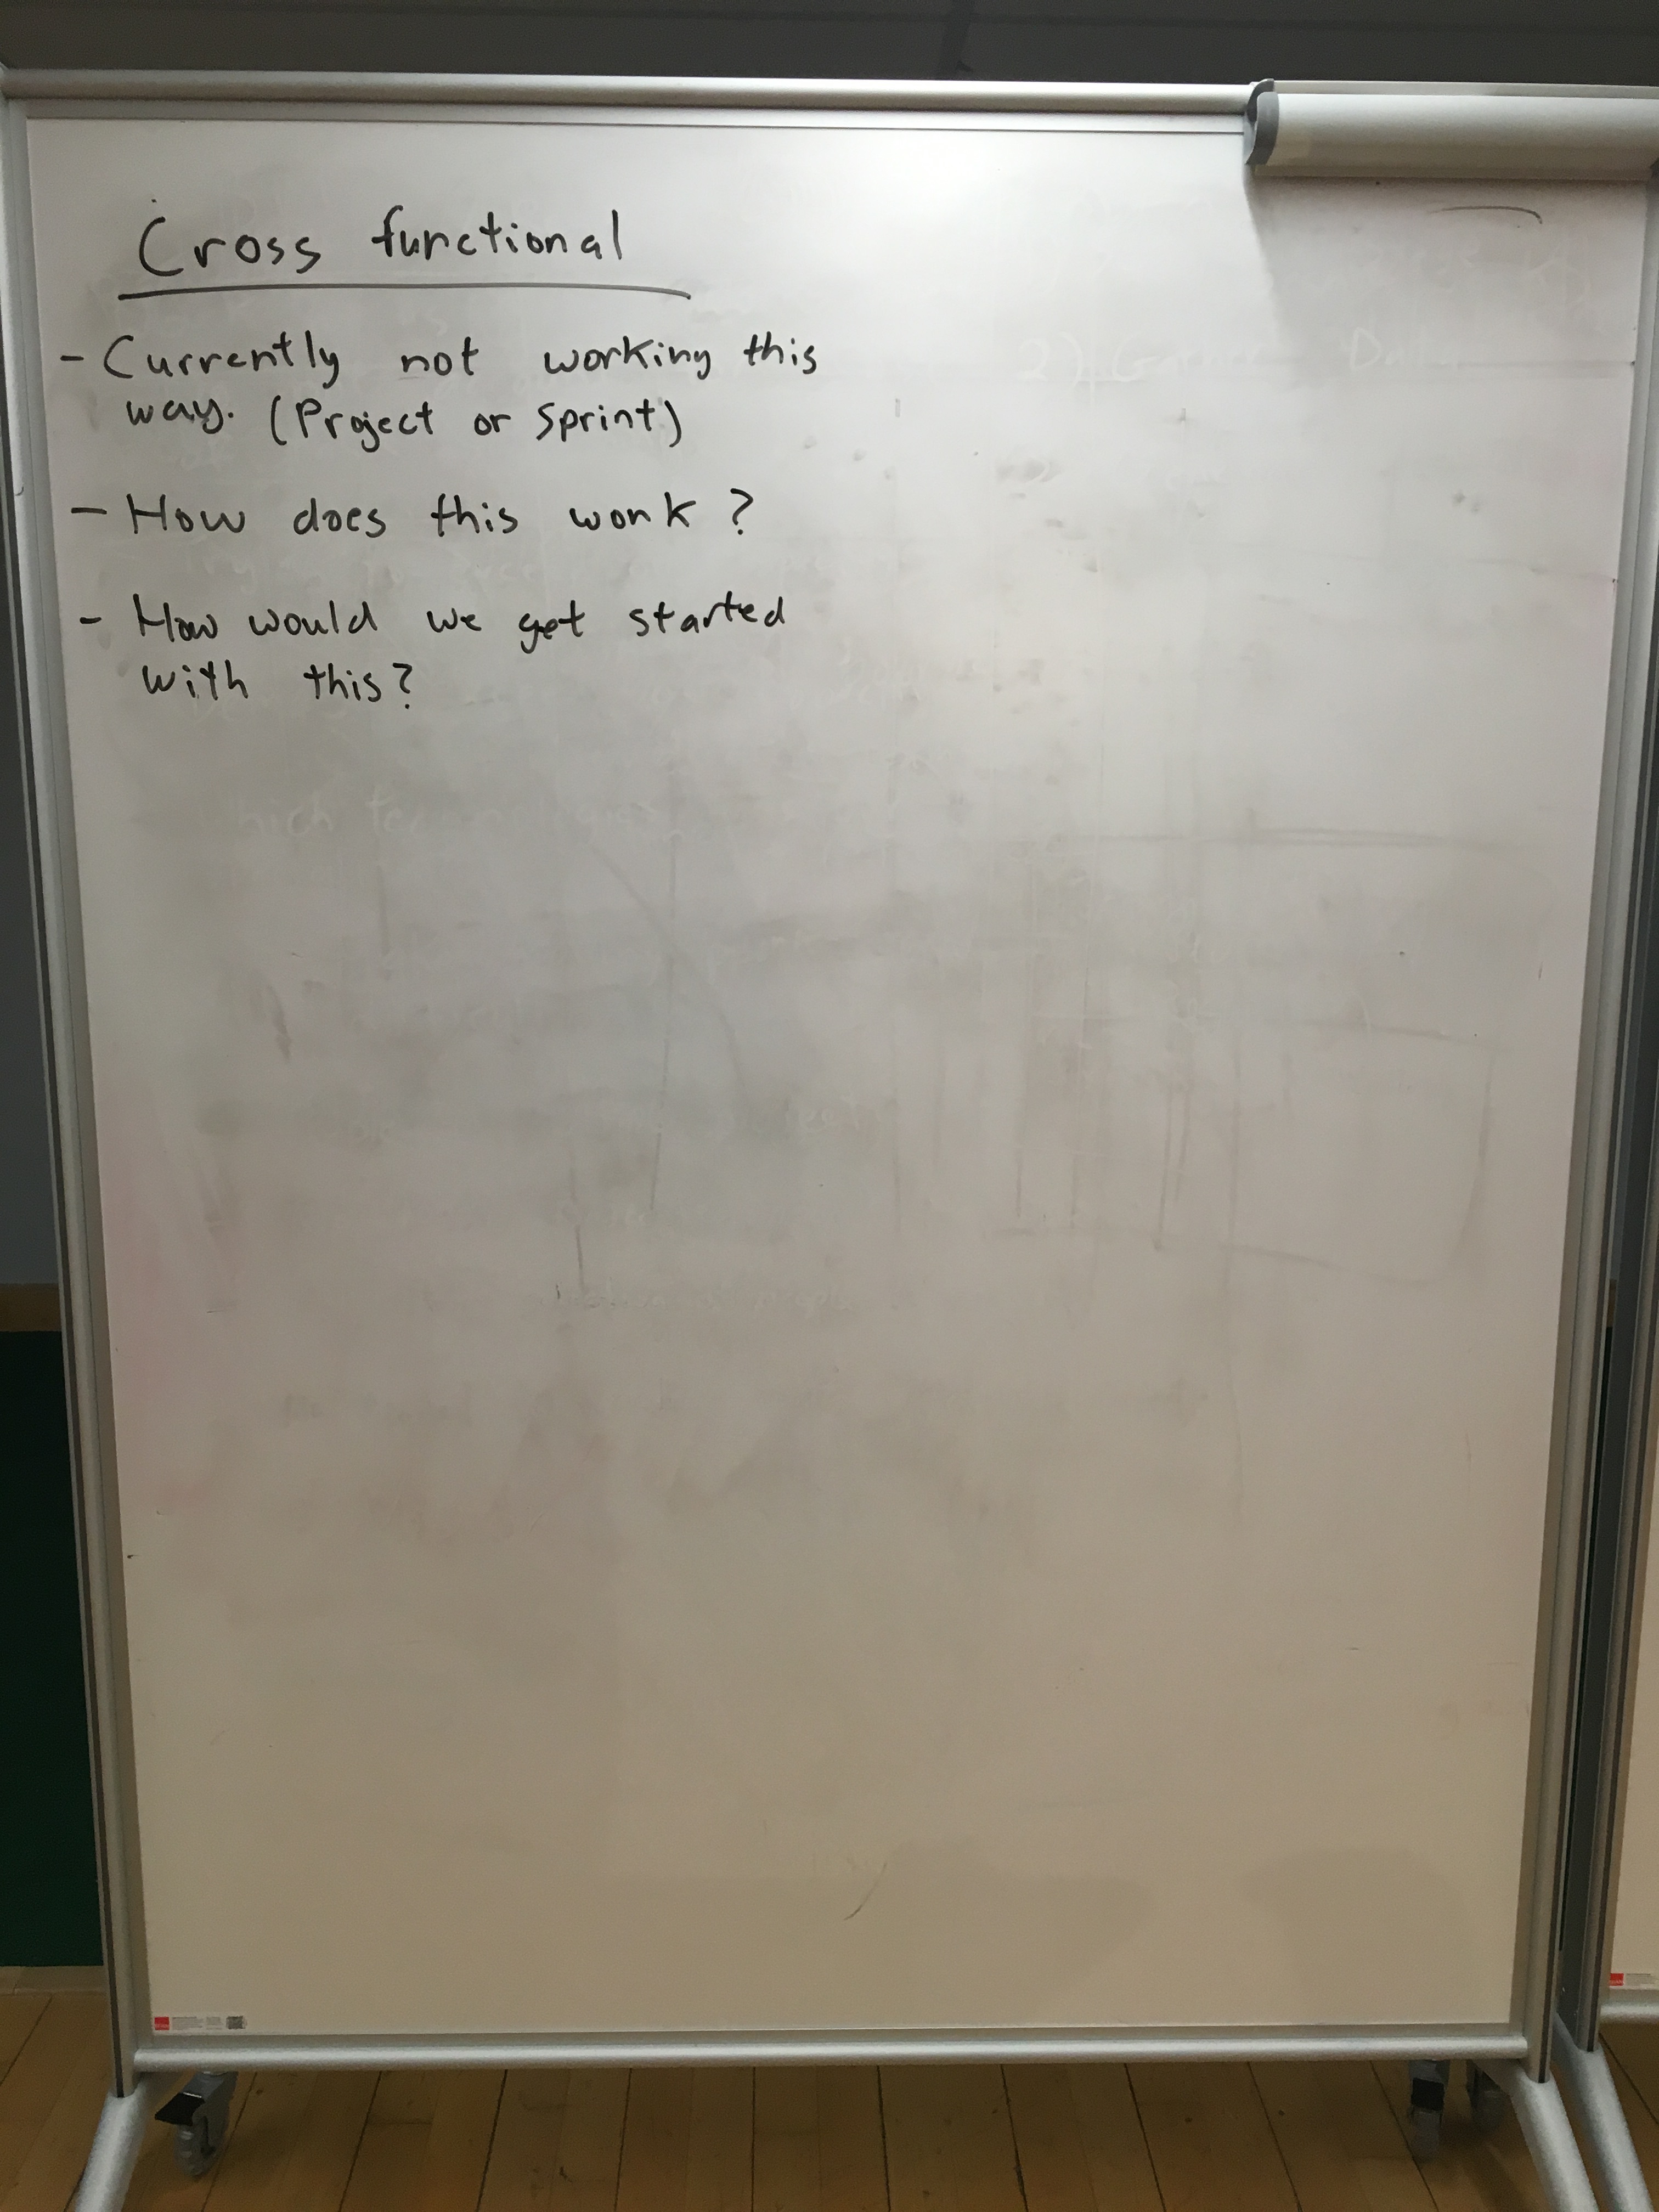 Cross functional
- Currently not working this
way. (Project or Sprint)
- How does this work?
- How would we get started
with this?